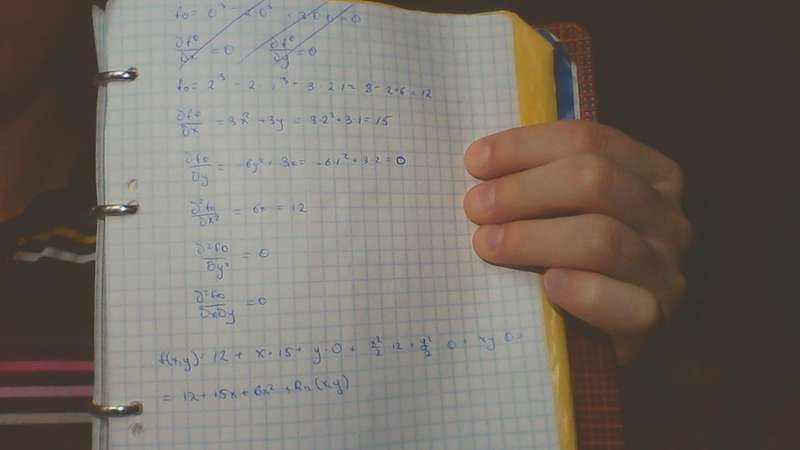 f₀ = 0³ - 2·0³ + 3·0·0 = 0
∂f₀/∂x = 0 ∂f₀/∂y = 0
f₀ = 2³ - 2 · 1³ - 3·2·1 = 8 - 2+6 = 12
∂f₀/∂x = 3x² + 3y = 3·2²+3·1 = 15
∂f₀/∂y = -6y² + 3x = -6·1² + 3·2 = 0
∂²f₀/∂x² = 6x = 12
∂²f₀/∂y² = 0
∂²f₀/∂x∂y = 0
f(x,y) = 12 + x·15 + y·0 + x²/2 · 12 + y²/2 · 0 + xy 0 =
= 12+15x+6x² + Rn(x,y)